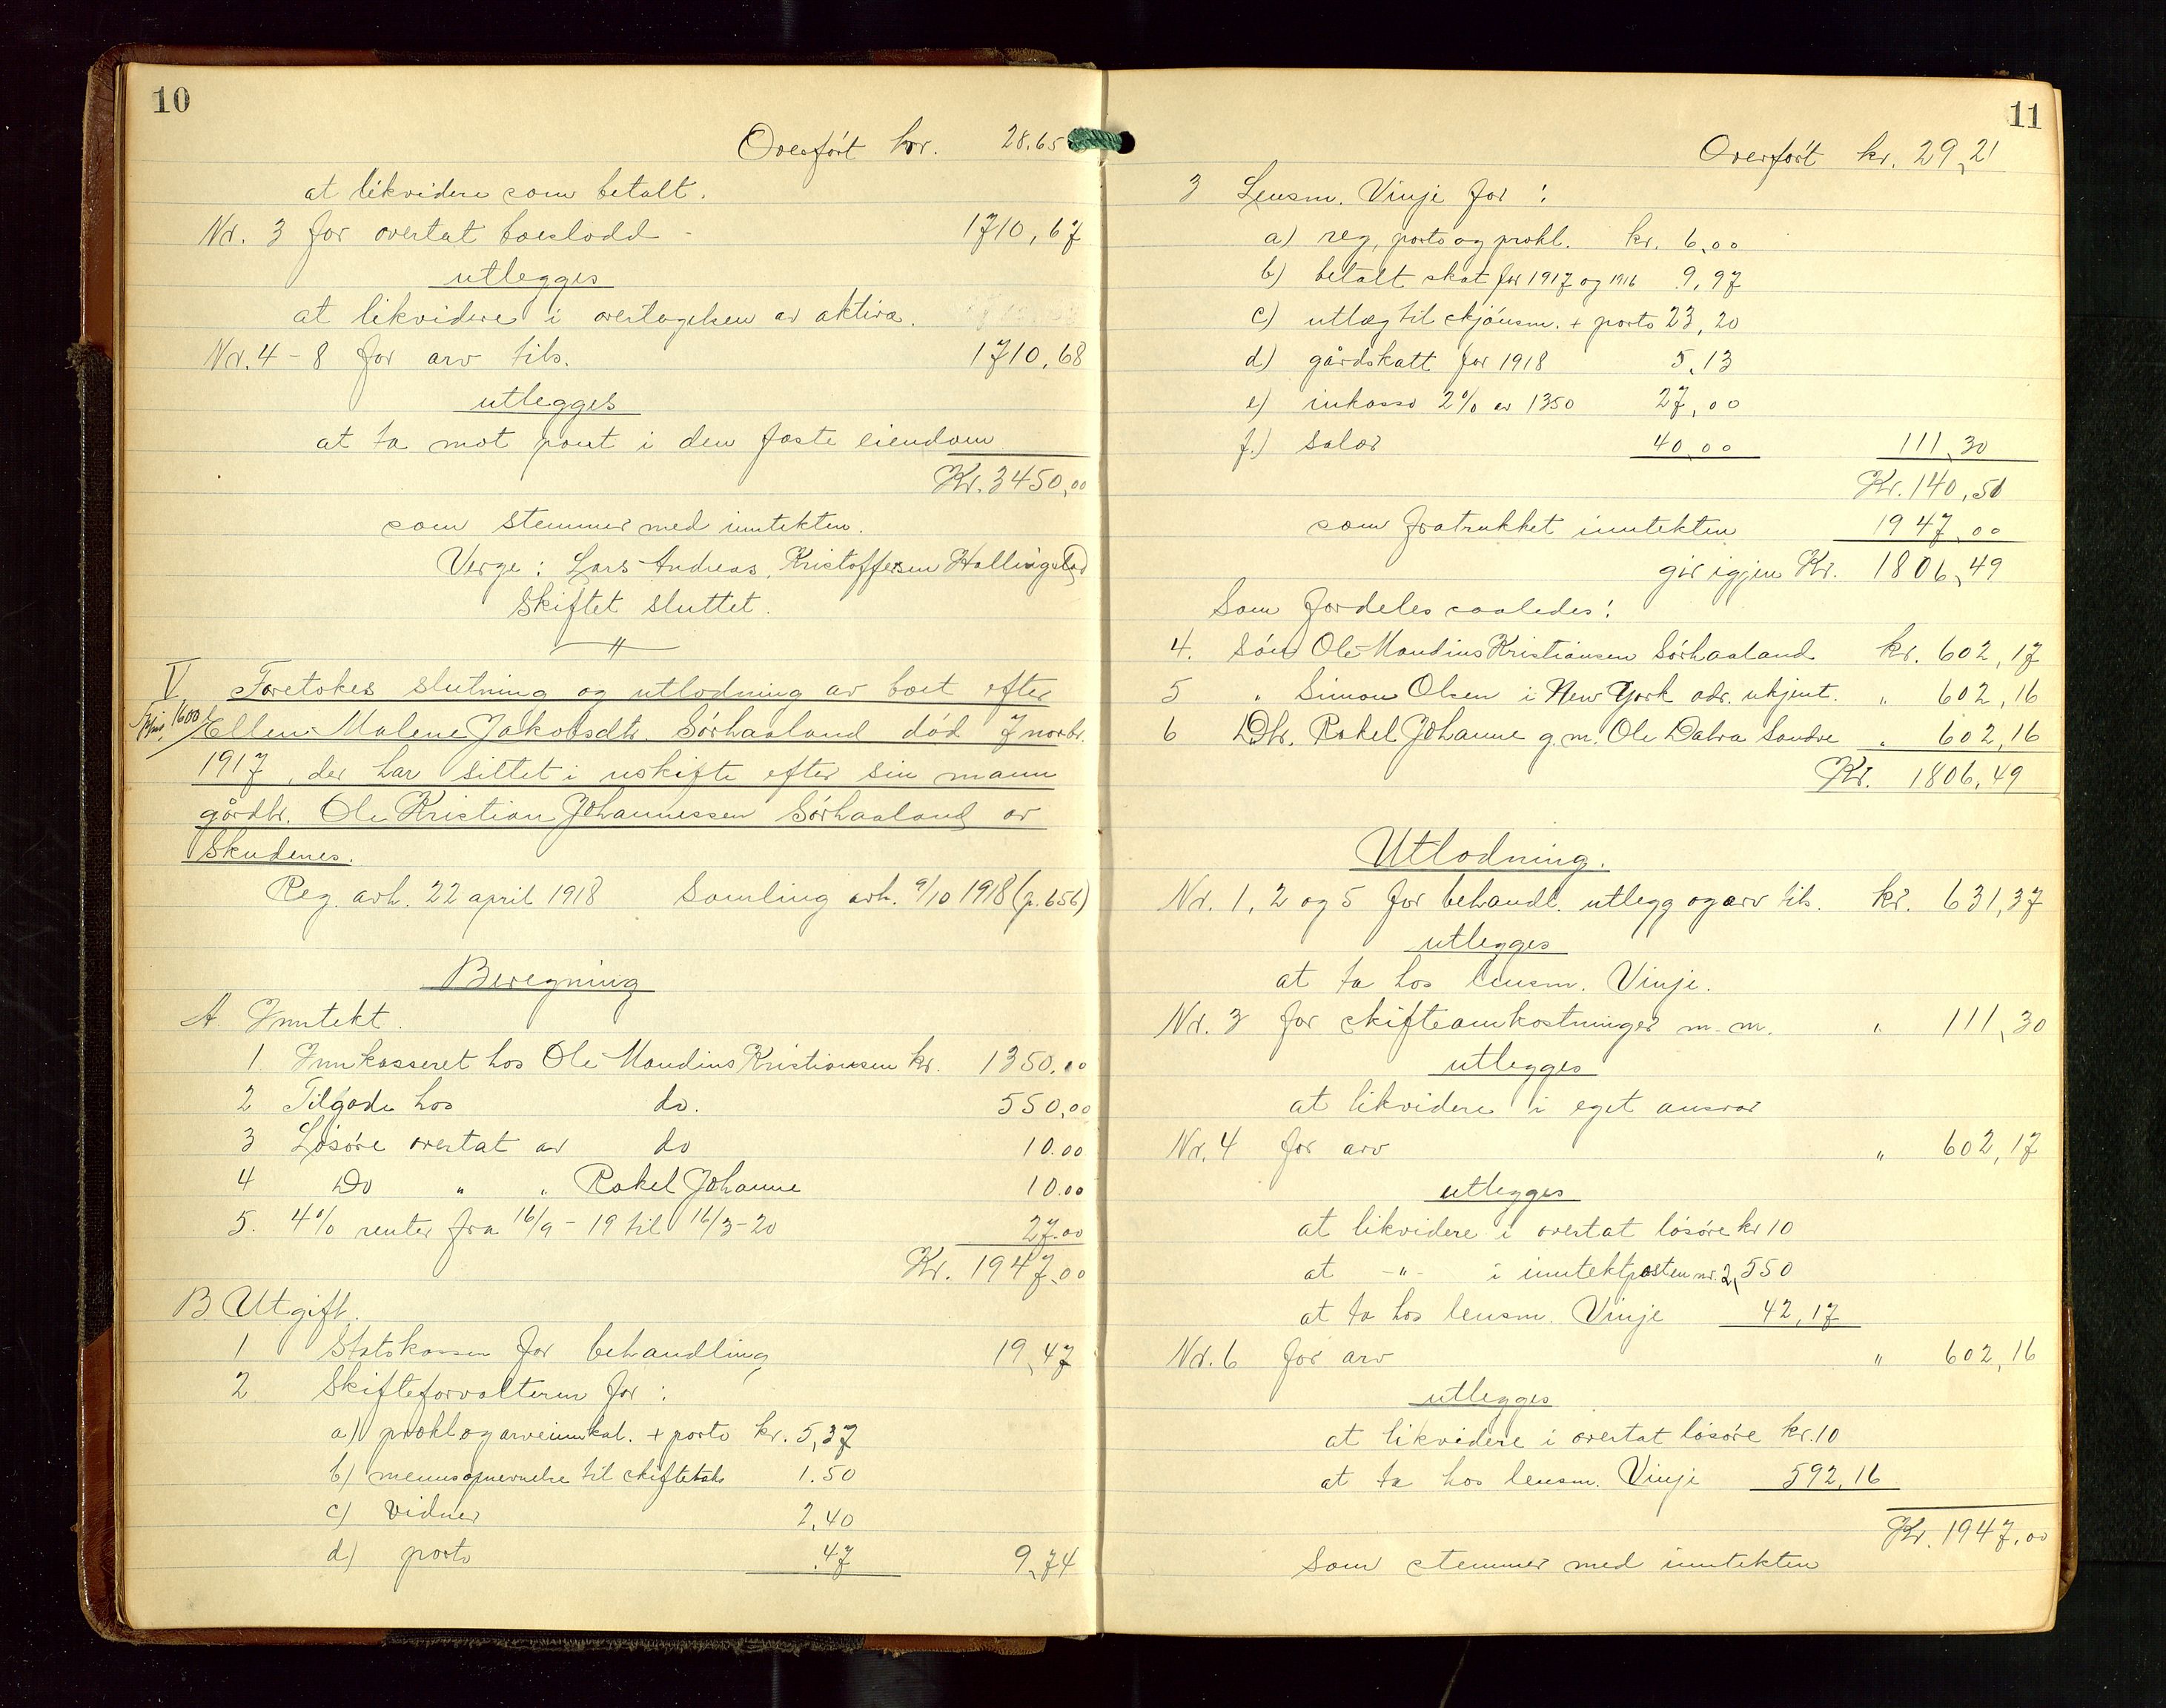 10
Overført kr. 28.65
at likvidere som betalt.
Nr. 3 for overtat boeslodd - 1710,67
utlegges
at likvidere i overtagelsen av aktiva.
Nr. 4 - 8 for arv tils. 1710,68
utlegges
at ta mot pant i den faste eiendom
Kr. 3450,00
som stemmer med inntekten.
Verge: Lars Andreas Kristoffersen Hallingstad
Skiftet sluttet.
V. Foretokes slutning og utlodning av boet efter
Ellen Malene Jakobsdtr. Sørhaaland død 7 novbr.
1917, der har sittet i uskifte efter sin mann
gårdbr. Ole Kristian Johannessen Sørhaaland av
Skudenes.
Reg. avh. 22 april 1918 Samling avh. 9/10 1918 (p. 656)
Beregning
A Inntekt.
1 Innkasseret hos Ole Mandius Kristiansen kr. 1350.00
2 Tilgode hos do. 550,00
3 Løsøre overtat av do 10.00
4 Do " " Rakel Johanne 10.00
5. 4% renter fra 16/9 - 19 til 16/3 - 20 27.00
Kr. 1947,00
B. Utgift.
1 Statskassen for behandling 19,47
2 Skifteforvalteren for:
a) prokl og arveinnkal. + porto kr. 5,37
b) mennsopnevnelse til skiftetakst 1.50
c) vidner 2,40
d) porto .47 9,74
11
Overført kr. 29,21
3 Lensm. Vinje for:
a) reg, porto og prokl. kr. 6,00
b) betalt skat for 1917 og 1916 9,97
c) utlæg til skjønsm. + porto 23,20
d) gårdskatt for 1918 5,13
e) inkasso 2% av 1350 27,00
f.) salær 40,00 111,30
Kr. 140,51
som fratrukket inntekten 1947,00
gir igjen Kr. 1806,49
Som fordeles saaledes:
4. Søn Ole Mandius Kristiansen Sørhaaland kr. 602,17
5 " Simon Olsen i New York adr. ukjent. " 602,16
6 Dtr. Rakel Johanne g.m. Ole Dalva Sandve " 602,16
Kr. 1806,49
Utlodning.
Nr. 1, 2 og 5 for behandl. utlegg og arv tils. kr. 631,37
utlegges
at ta hos lensm. Vinje.
Nr. 3 for skifteomkostninger m.m. " 111,30
utlegges
at likvidere i eget ansvar
Nr. 4 for arv " 602,17
utlegges
at likvidere i overtat løsøre kr 10
at -"- i inntektposten nr. 2, 550
at ta hos lensm. Vinje 42,17
Nr. 6 for arv " 602,16
utlegges
at likvidere i overtat løsøre kr. 10
at ta hos lensm. Vinje 592,16
Kr. 1947,00
Som stemmer med inntekten